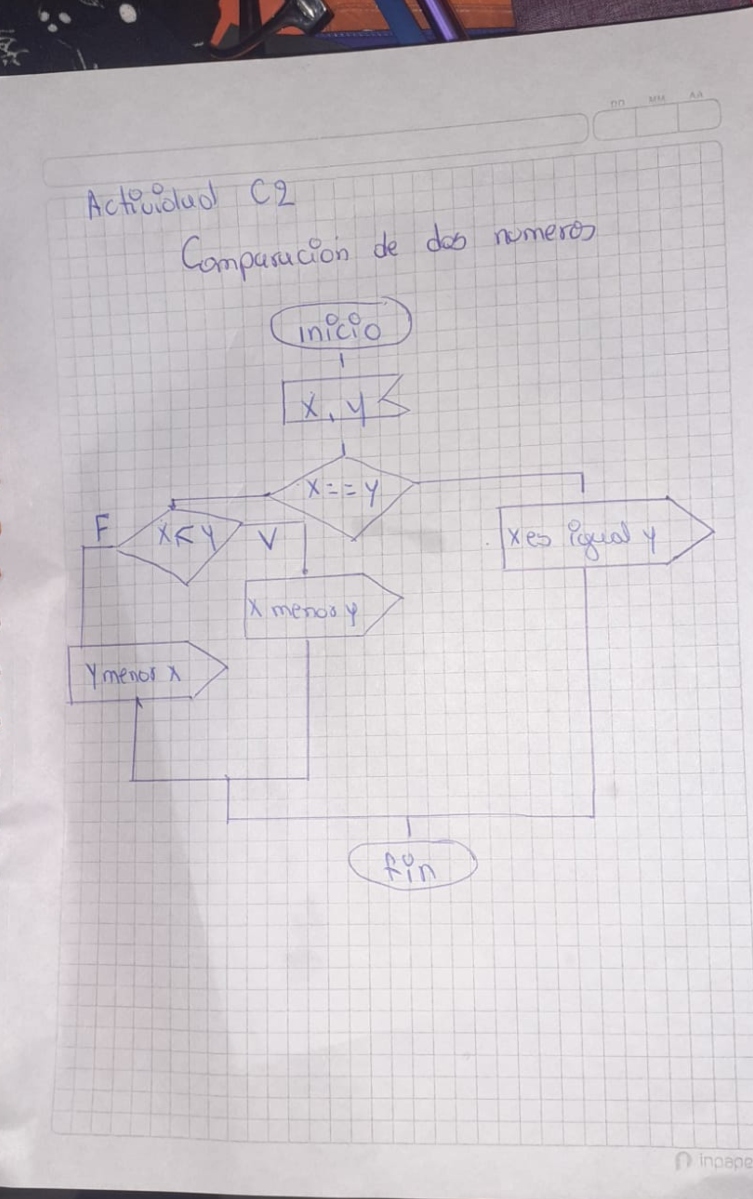 DD MM AA
Actividad C2
Comparación de dos numeros
inicio
X, y
X==y
F
X<y
V
x es igual y
X menor y
Y menor x
fin
inpape